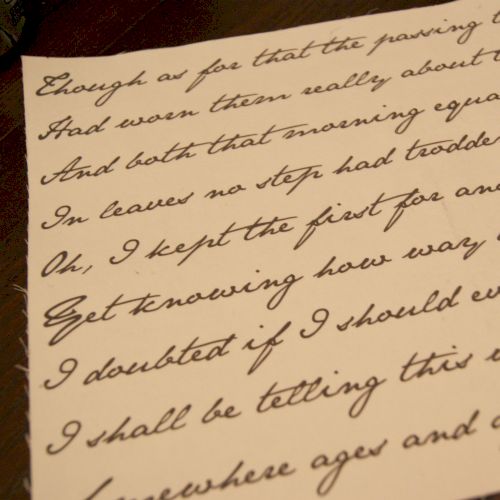 Though as for that the passing
Had worn them really about
And both that morning equa
In leaves no step had trodde
Oh, I kept the first for ano
Yet knowing how way
I doubted if I should ev
I shall be telling this
somewhere ages and